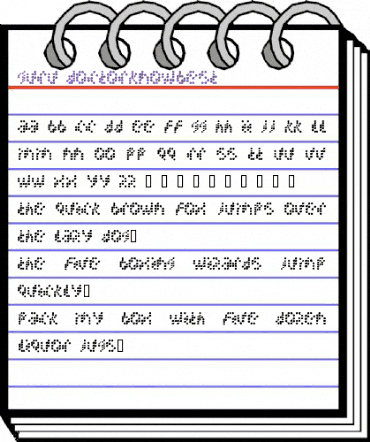 guru doctorknowbest
aa bb cc dd ee ff gg hh ii jj kk ll
mm nn oo pp qq rr ss tt uu vv
ww xx yy zz □ □ □ □ □ □ □ □ □ □
the quick brown fox jumps over
the lazy dog□
the five boxing wizards jump
quickly□
pack my box with five dozen
liquor jugs□